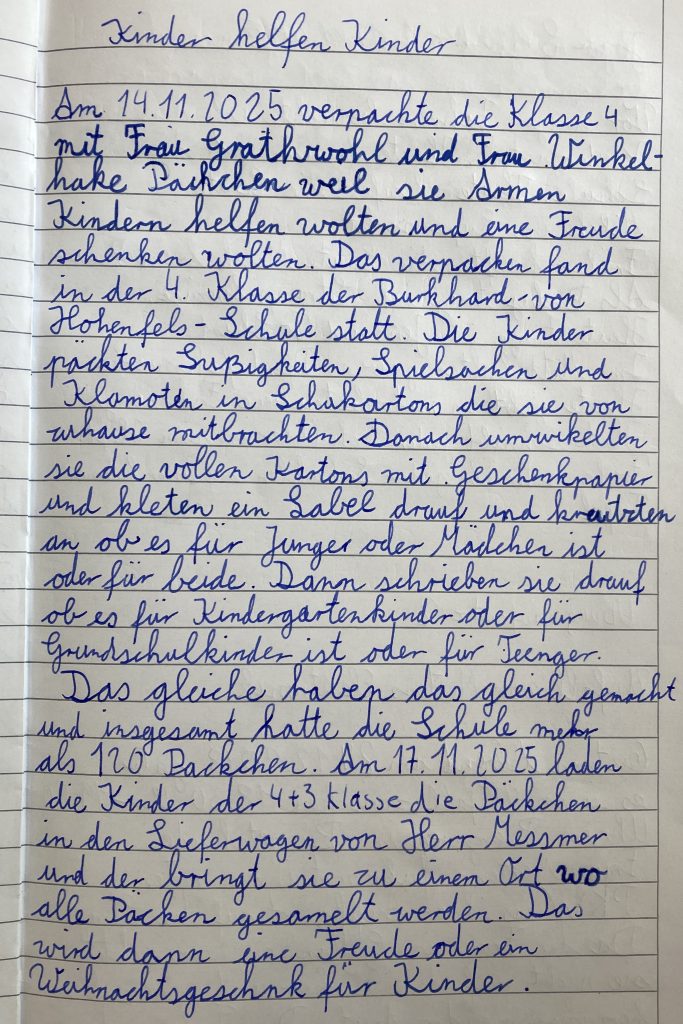 Kinder helfen Kinder
Am 14.11.2025 verpackte die Klasse 4
mit Frau Grathwohl und Frau Winkel-
hake Päckchen weil sie Armen
Kindern helfen wolten und eine Freude
schenken wolten. Das verpacken fand
in der 4. Klasse der Burkhard-von
Hohenfels-Schule statt. Die Kinder
päckten Sußigkeiten, Spielsachen und
Klamoten in Schukartons die sie von
zuhause mitbrachten. Danach umwikelten
sie die vollen Kartons mit Geschenkpapier
und kleten ein Label drauf und kreutzten
an ob es für Junger oder Mädchen ist
oder für beide. Dann schrieben sie drauf
ob es für Kindergartenkinder oder für
Grundschulkinder ist oder für Teenger.
Das gleiche haben das gleich gemacht
und insgesamt hatte die Schule mehr
als 120 Packchen. Am 17.11.2025 laden
die Kinder der 4+3 klasse die Päckchen
in den Lieferwagen von Herr Messmer
und der bringt sie zu einem Ort wo
alle Päcken gesamelt werden. Das
wird dann eine Freude oder ein
Weihnachtsgeschnk für Kinder.